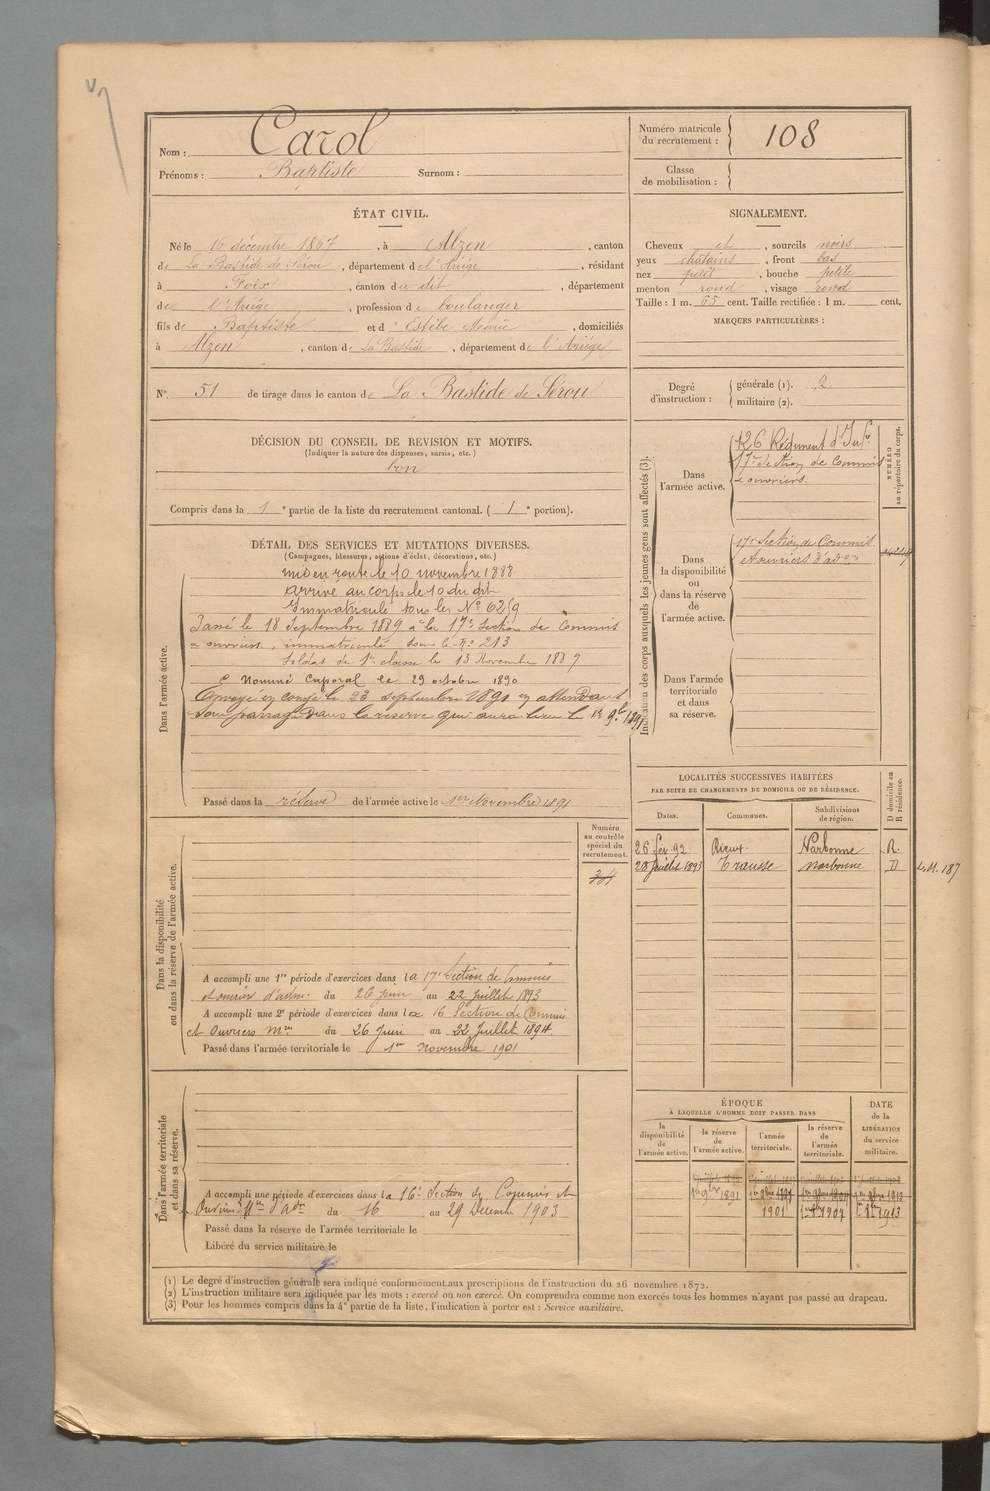 Nom : Carol
Prénoms : Baptiste Surnom :
Numéro matricule du recrutement : 108
Classe de mobilisation :
ÉTAT CIVIL.
Né le 16 décembre 1867, à Alzen, canton
de La Bastide de Sérou, département de l'Ariége, résidant
à Foix, canton du dit, département
de l'Ariége, profession de boulanger
fils de Baptiste et d' Estèbe Marie, domiciliés
à Alzen, canton de La Bastide, département de l'Ariége
SIGNALEMENT.
Cheveux et, sourcils noirs
yeux chatains, front bas
nez petit, bouche petite
menton rond, visage rond
Taille : 1 m. 65 cent. Taille rectifiée : 1 m. cent.
MARQUES PARTICULIÈRES :
N° 51 de tirage dans le canton de La Bastide de Sérou
Degré d'instruction : générale (1). 2
militaire (2).
DÉCISION DU CONSEIL DE REVISION ET MOTIFS.
(Indiquer la nature des dispenses, sursis, etc.)
bon
Compris dans la 1e partie de la liste du recrutement cantonal. ( 1e portion).
DÉTAIL DES SERVICES ET MUTATIONS DIVERSES.
(Campagnes, blessures, actions d'éclat, décorations, etc.)
Dans l'armée active.
mis en route le 10 novembre 1888
arrivé au corps le 10 du dit
Immatriculé sous les N°
Passé le 18 Septembre 1889 à la 17e Section de Commis
et ouvriers, immatriculé sous le N° 213
Soldat de 1e classe le 13 Novembre 1889
Nommé Caporal le 29 octobre 1890
Envoyé en congé le 23 septembre 1891 en attendant
son passage dans la reserve qui aura lieu le 1er 9bre 1891
Passé dans la réserve de l'armée active le 1er Novembre 1891
Indication des corps auxquels les jeunes gens sont affectés (3).
NUMÉRO au répertoire du corps.
Dans l'armée active.
126 Régiment d'Infie
17e Section de Commis
et ouvriers.
Dans la disponibilité ou dans la réserve de l'armée active.
17e Section de Commis
et ouvriers d'adon
Dans l'armée territoriale et dans sa réserve.
LOCALITÉS SUCCESSIVES HABITÉES
PAR SUITE DE CHANGEMENTS DE DOMICILE OU DE RÉSIDENCE.
Dates. Communes. Subdivisions de région. D domicile ou R résidence.
26 fev. 92 Rieux Narbonne R.
20 Juillet 1893 Trausse Narbonne D
Dans la disponibilité ou dans la réserve de l'armée active.
Numéro au contrôle spécial du recrutement.
A accompli une 1re période d'exercices dans la 17e Section de Commis
et ouvriers d'adm. du 26 juin au 22 Juillet 1893
A accompli une 2e période d'exercices dans la 16 Section de Commis
et Ouvriers mres du 26 Juin au 22 Juillet 1894.
Passé dans l'armée territoriale le 1er Novembre 1901
Dans l'armée territoriale et dans sa réserve.
A accompli une période d'exercices dans la 16e Section de Commis et
Ouvriers d'adon du 16 au 29 Décembre 1903
Passé dans la réserve de l'armée territoriale le
Libéré du service militaire le
ÉPOQUE
A LAQUELLE L'HOMME DOIT PASSER DANS
la disponibilité de l'armée active. la réserve de l'armée active. l'armée territoriale. la réserve de l'armée territoriale.
DATE de la LIBÉRATION du service militaire.
1er 9bre 1891
1901 1907 1913
(1) Le degré d'instruction générale sera indiqué conformément aux prescriptions de l'instruction du 26 novembre 1872.
(2) L'instruction militaire sera indiquée par les mots : exercé ou non exercé. On comprendra comme non exercés tous les hommes n'ayant pas passé au drapeau.
(3) Pour les hommes compris dans la 4e partie de la liste, l'indication à porter est : Service auxiliaire.